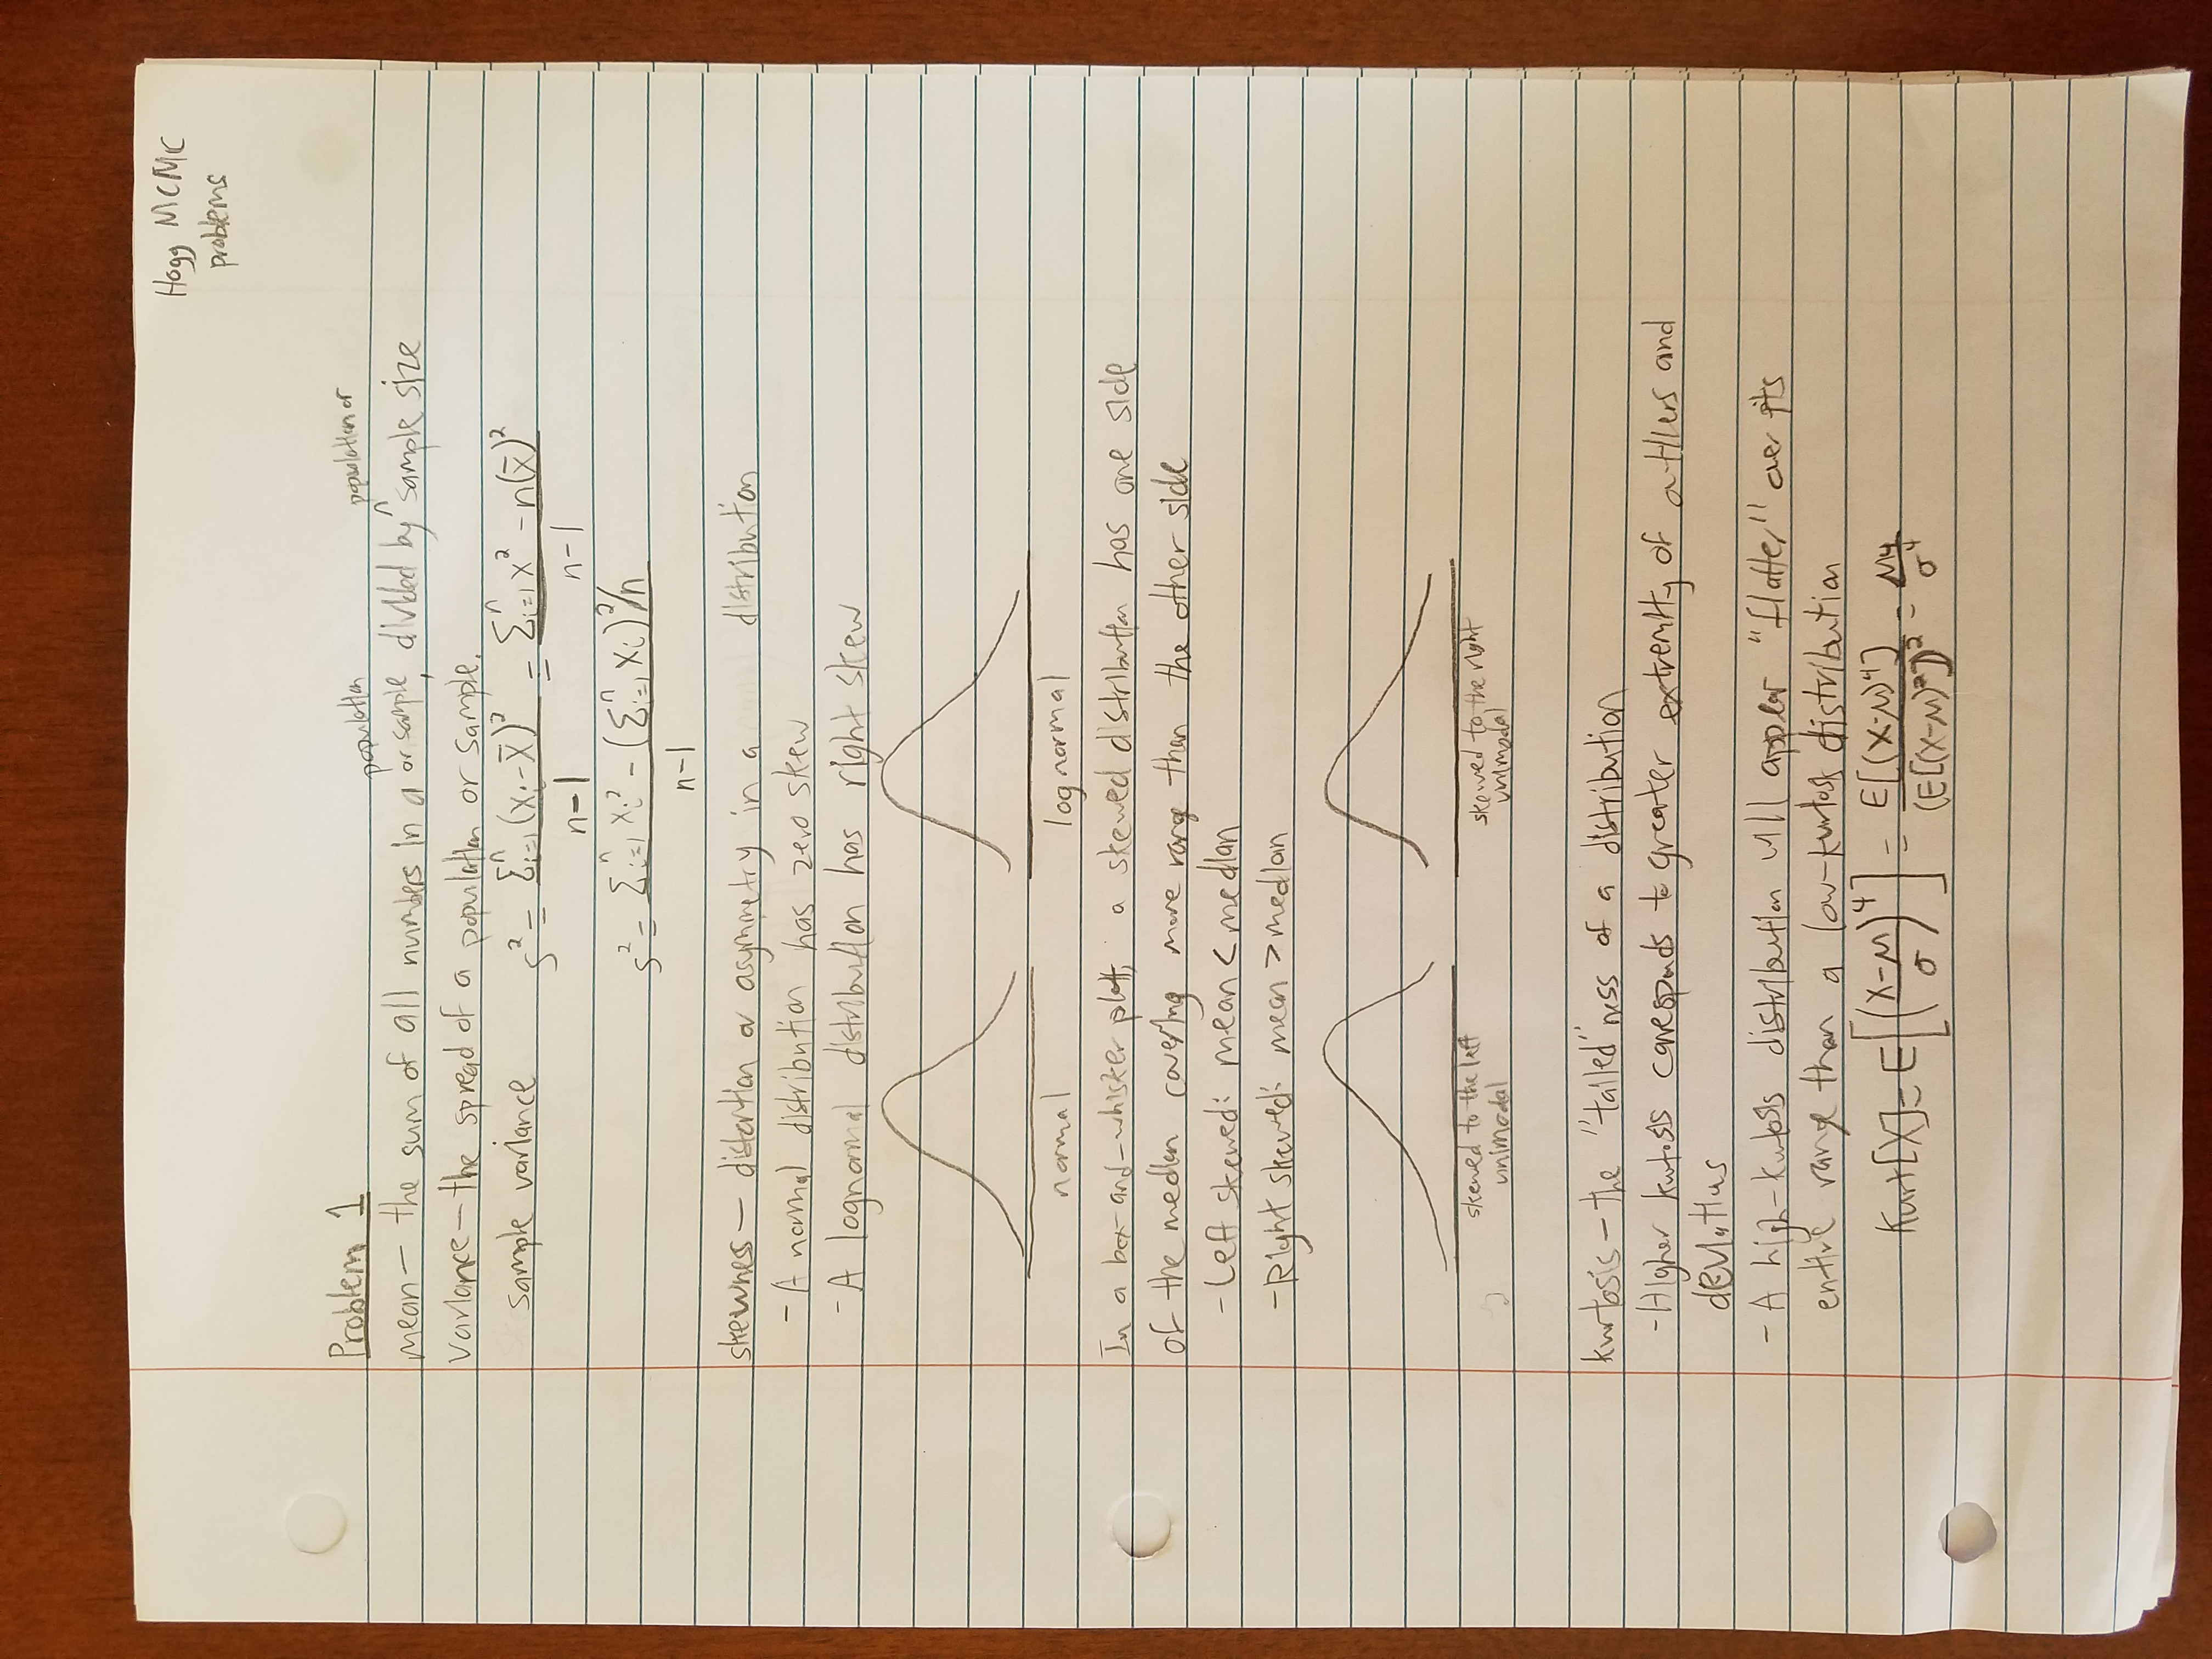 Hogg MCMC
problems
Problem 1
population
population or
mean — the sum of all numbers in a or sample, divided by ^ sample size
variance — the spread of a population or sample.
sample variance s² = Σⁿᵢ₌₁(xᵢ-x̄)² / n-1 = Σⁿᵢ₌₁x² - n(x̄)² / n-1
s² = Σⁿᵢ₌₁ xᵢ² - (Σⁿᵢ₌₁ xᵢ)²/n / n-1
skewness — distortion or asymmetry in a distribution
- A normal distribution has zero skew
- A lognormal distribution has right skew
normal lognormal
In a box-and-whisker plot, a skewed distribution has one side
of the median covering more range than the other side
- Left skewed: mean < median
- Right skewed: mean > median
skewed to the left skewed to the right
unimodal unimodal
kurtosis — the "tailed"ness of a distribution
- Higher kurtosis corresponds to greater extremity of outliers and
deviations
- A high-kurtosis distribution will appear "flatter" over its
entire range than a low-kurtosis distribution
Kurt[X] = E[((X-μ)/σ)⁴] = E[(X-μ)⁴] / (E[(X-μ)²])² = μ₄/σ⁴